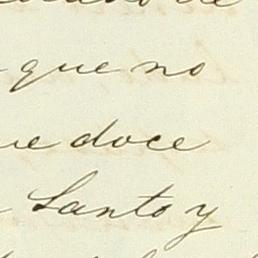 que no
ue doce
Santo y